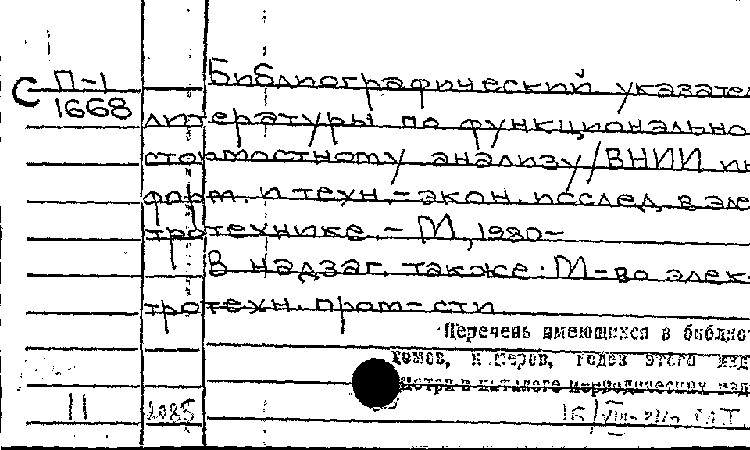 С П-1
1668
Библиографический указател
литературы по функционально
стоимостному анализу/ВНИИ ин
форм. и техн.-экон. исслед. в элек
тротехнике. - М, 1980-
В надзаг. также: М-во элек-
тротехн. пром-сти
Перечень имеющихся в библиот
томов, номеров, годов этого изд
смотри в каталоге периодических изд
11 16/VIII-